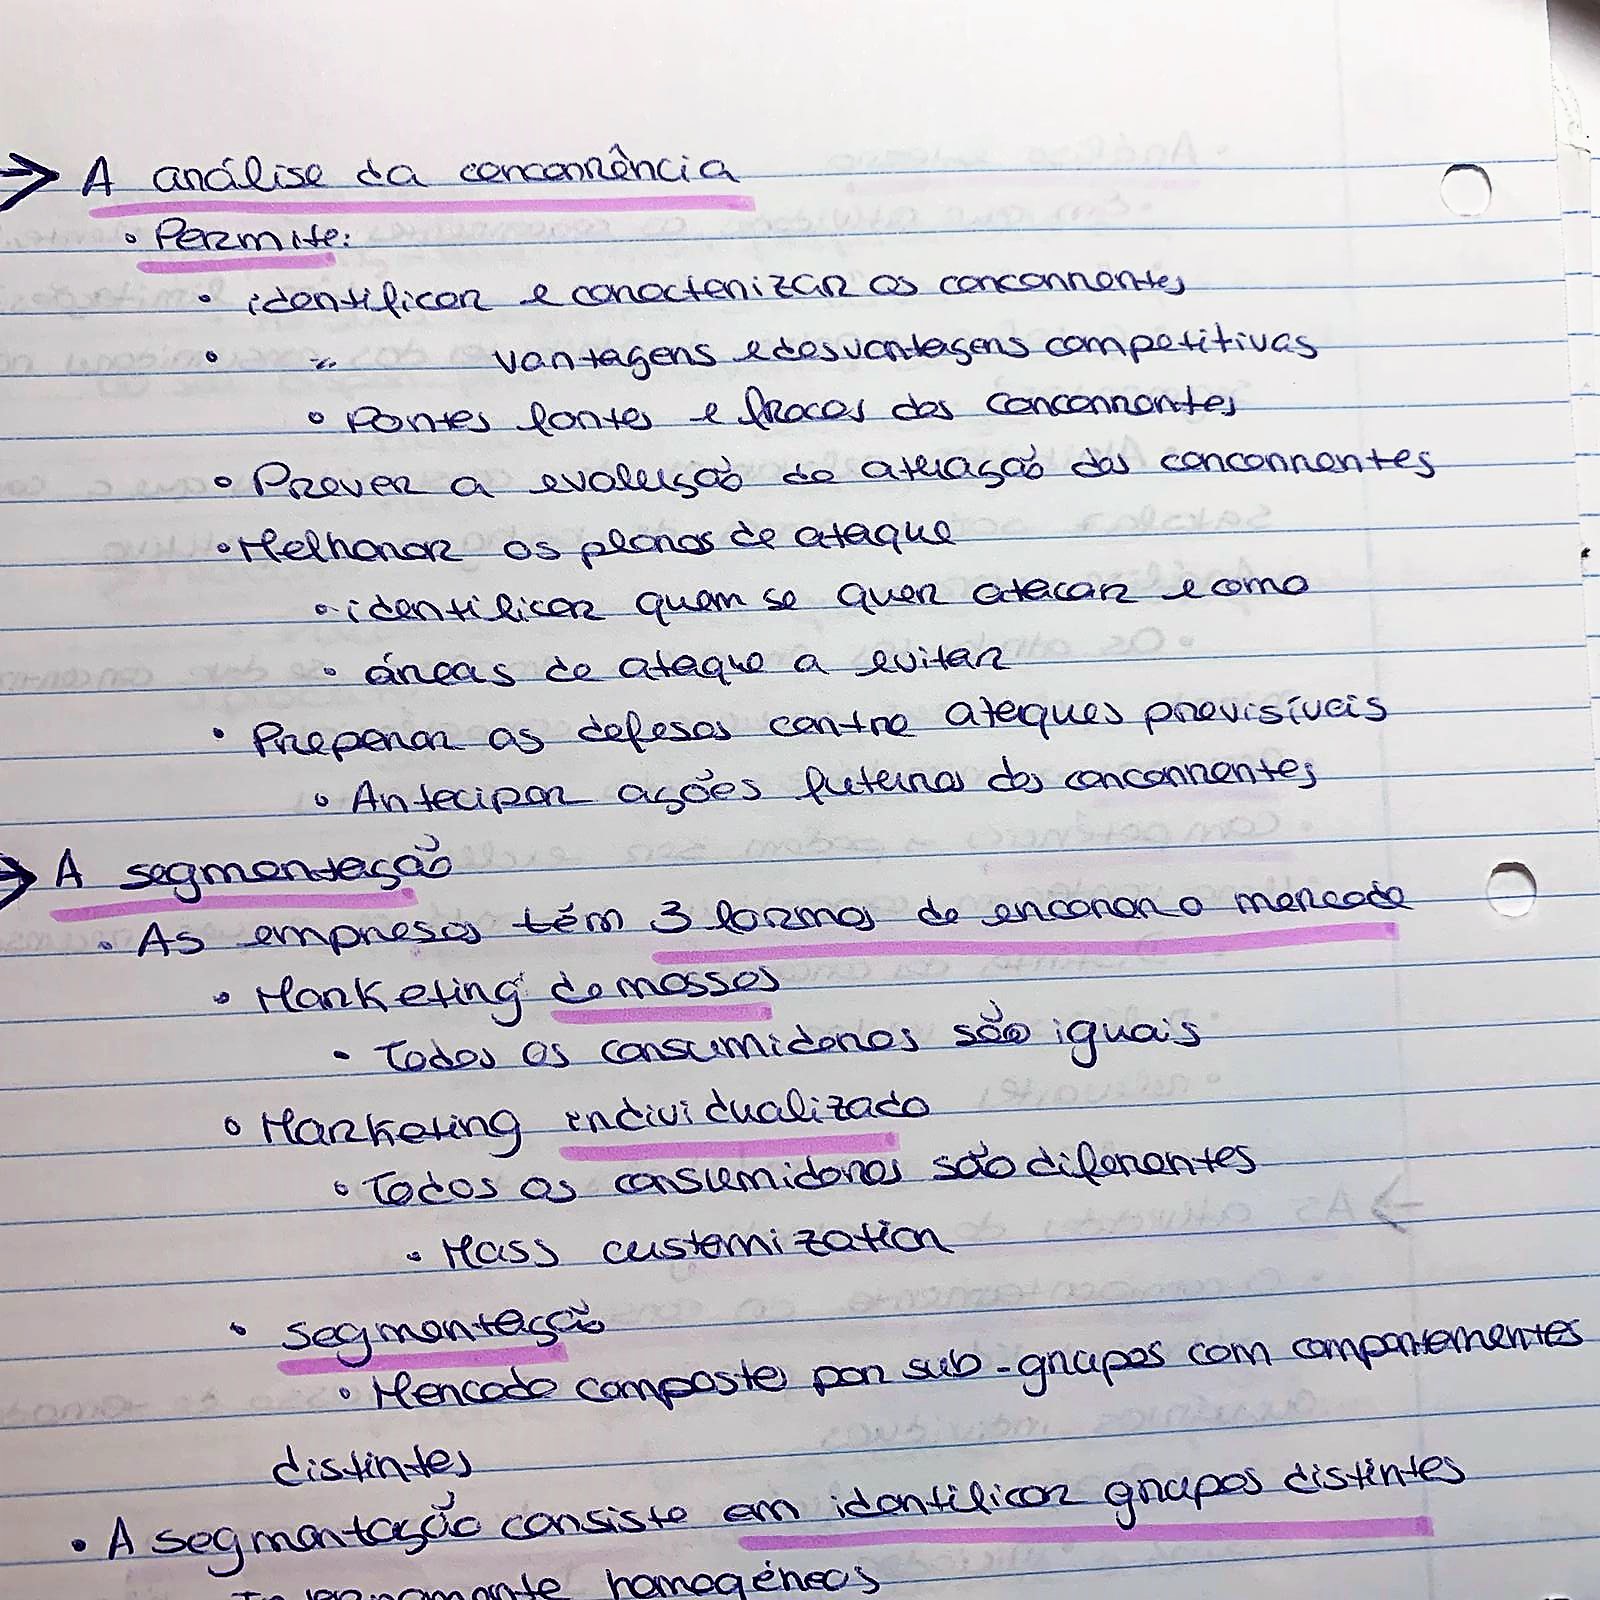 → A análise da concorrência
• Permite:
• identificar e caracterizar os concorrentes
• " vantagens e desvantagens competitivas
• Pontos fortes e fracos dos concorrentes
• Prever a evolução da atuação dos concorrentes
• Melhorar os planos de ataque
• identificar quem se quer atacar e como
• áreas de ataque a evitar
• Preparar as defesas contra ataques previsíveis
• Antecipar ações futuras dos concorrentes
→ A segmentação
• As empresas têm 3 formas de encarar o mercado
• Marketing de massas
• Todos os consumidores são iguais
• Marketing individualizado
• Todos os consumidores são diferentes
• Mass customization
• Segmentação
• Mercado composto por sub-grupos com comportamentos
distintos
• A segmentação consiste em identificar grupos distintos
Internamente homogéneos